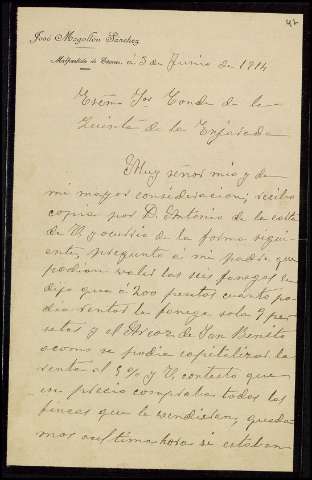 47
José Mogollón Sánchez
Malpartida de Cáceres á 3 de Junio de 1914
Exmo Sor Conde de la
Quinta de la Enjarada
Muy señor mio y de
mi mayor consideracion; recibo
copia por D. Antonio de la carta
de V. y ocurrió de la forma sigui-
ente, pregunto á mi padre que
podian valer las seis fanegas le
dijo que á 200 pesetas cuanto po-
dia rentar la fanega sola 9 pese-
tas y el Arcoz de San Benito
como se podia capitalizar la
renta al 5 % y V. contesto que
en precio compraba todas las
fincas que le vendieran, queda
mos a ultima hora si estaban